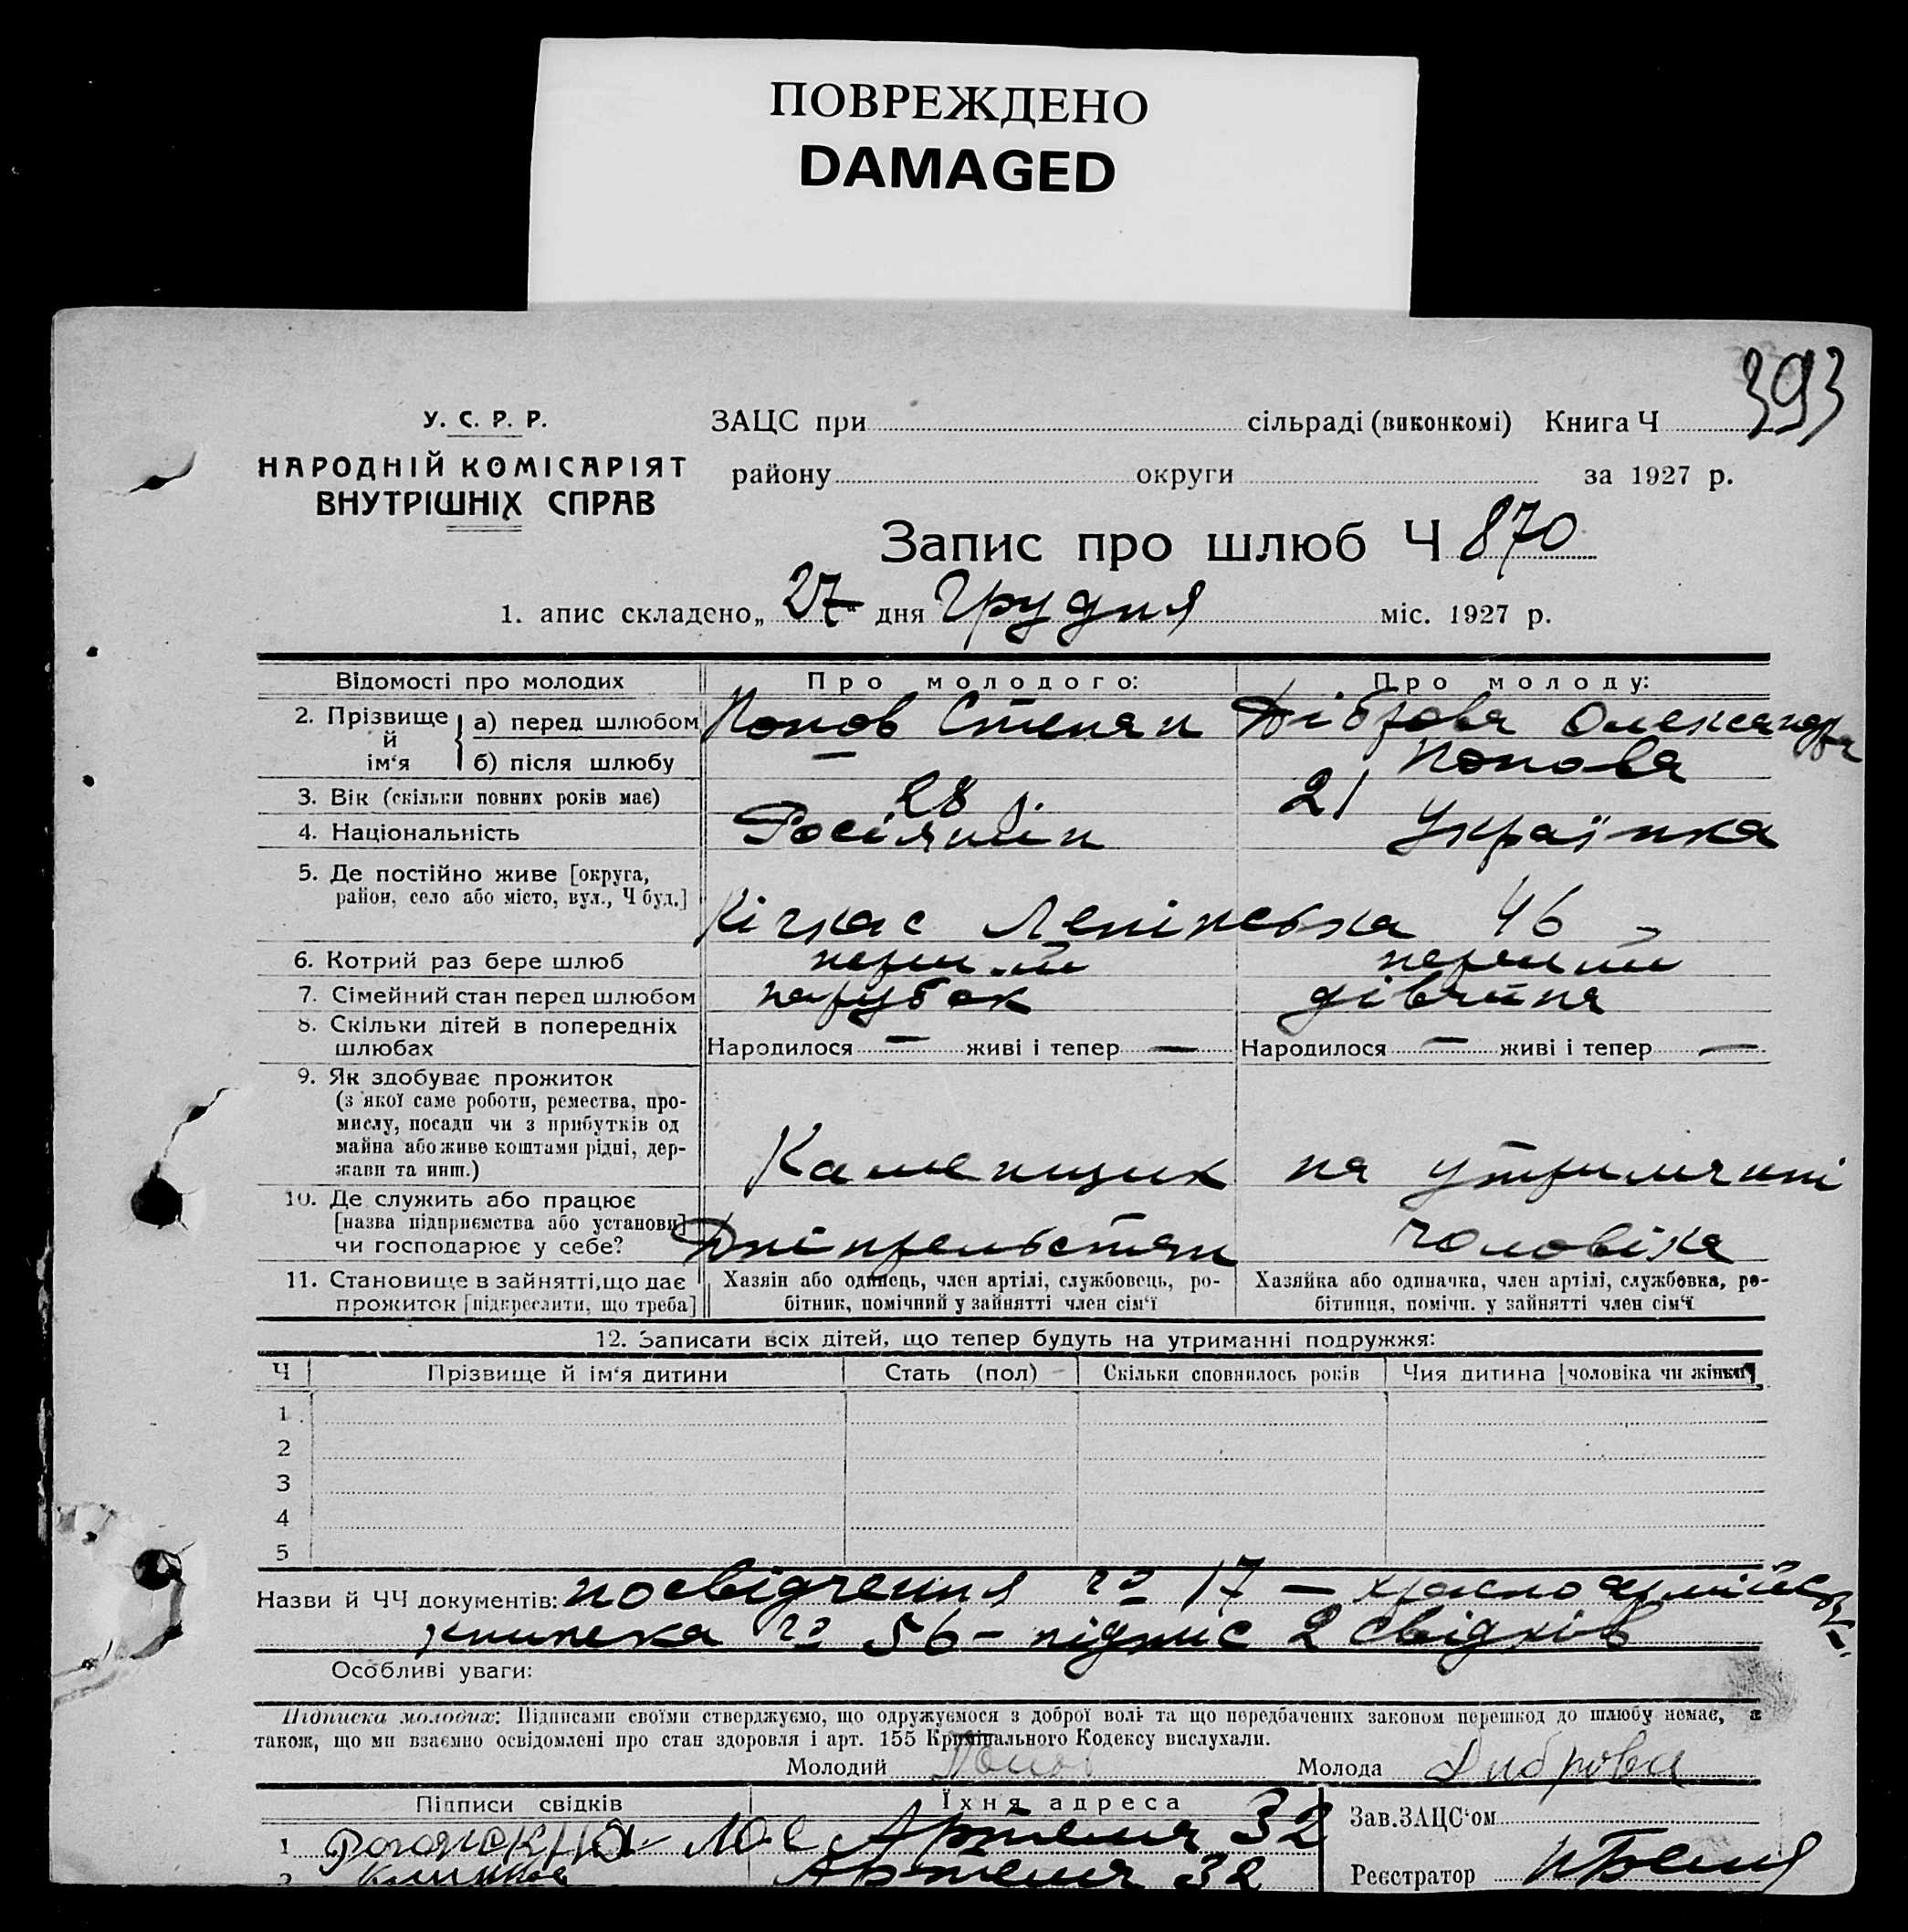 ПОВРЕЖДЕНО
DAMAGED
393
У. С. Р. Р.
НАРОДНІЙ КОМІСАРІЯТ
ВНУТРІШНІХ СПРАВ
ЗАЦС при сільраді (виконкомі) Книга Ч
району округи за 1927 р.
Запис про шлюб Ч 870
1. апис складено „27“ дня Грудня міс. 1927 р.
Відомості про молодих Про молодого: Про молоду:
2. Прізвище й ім‘я
а) перед шлюбом Попов Степан Діброва Олександра
б) після шлюбу — Попова
3. Вік (скільки повних років має) 28 р. 21
4. Національність Росіянин Українка
5. Де постійно живе [округа,
район, село або місто, вул., Ч буд.] Кічкас Ленінська 46
6. Котрий раз бере шлюб перший перший
7. Сімейний стан перед шлюбом парубок дівчина
8. Скільки дітей в попередніх
шлюбах Народилося — живі і тепер — Народилося — живі і тепер —
9. Як здобуває прожиток
(з якої саме роботи, ремества, про-
мислу, посади чи з прибутків од
майна або живе коштами рідні, дер-
жави та инш.) Каменщик на утриманні
10. Де служить або працює
[назва підприємства або установи]
чи господарює у себе? Дніпрельстан чоловіка
11. Становище в зайнятті, що дає
прожиток [підкреслити, що треба]
Хазяін або одинець, член артілі, службовець, ро-
бітник, помічний у зайнятті член сім‘ї
Хазяйка або одиначка, член артілі, службовка, ро-
бітниця, помічн. у зайнятті член сім‘ї
12. Записати всіх дітей, що тепер будуть на утриманні подружжя:
Ч Прізвище й ім‘я дитини Стать (пол) Скільки сповнилось років Чия дитина [чоловіка чи жінки]
1
2
3
4
5
Назви й ЧЧ документів: посвідчення № 17 — красноармійськ.
книжка № 56 — підпис 2 свідків
Особливі уваги:
Підписка молодих: Підписами своїми стверджуємо, що одружуємося з доброї волі та що передбачених законом перешкод до шлюбу немає, а
також, що ми взаємно освідомлені про стан здоровля і арт. 155 Кримінального Кодексу вислухали.
Молодий Попов Молода Диброва
Підписи свідків Їхня адреса
1 Артема 32
2 Артема 32
Зав. ЗАЦС‘ом
Реєстратор